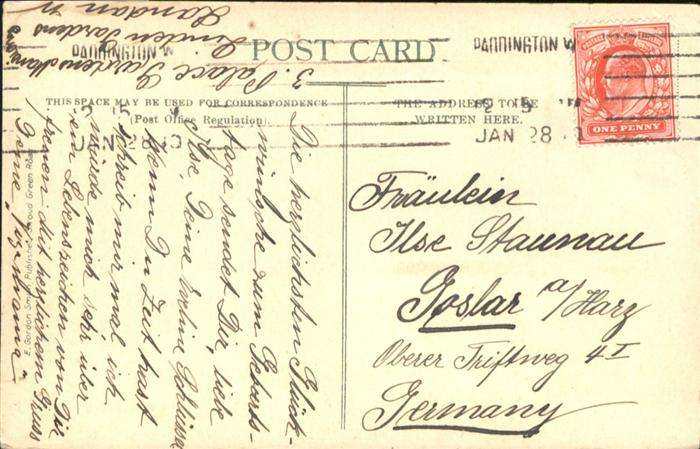 3. Palace Gardens Mans.
Linden Gardens
London W
POST CARD
PADDINGTON W
PADDINGTON W
THIS SPACE MAY BE USED FOR CORRESPONDENCE
(Post Office Regulation).
THE ADDRESS TO BE
WRITTEN HERE.
JAN 28 10
JAN 28
ONE PENNY
Die herzlichsten Glück-
wünsche zum Geburts-
tage sendet Dir, liebe
Ilse, Deine
Wenn Du Zeit hast
schreib mir mal, ich
würde mich sehr über
ein Lebenszeichen von Dir
freuen. Mit herzlichem Gruss
Deine
Fräulein
Ilse Staunau
Goslar a/Harz
Oberer Triftweg 4 I
Germany